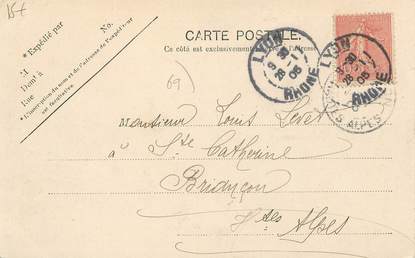 15+
No.
* Expédié par
M
Dem! à
Rue
* L'inscription du nom et de l'adresse de l'expéditeur
est facultative.
CARTE POSTALE
Ce côté est exclusivement l'adresse
LYON
RHONE
LYON
RHONE
Htes ALPES
69)
Monsieur Louis
à Ste Catherine
Briançon
Htes Alpes